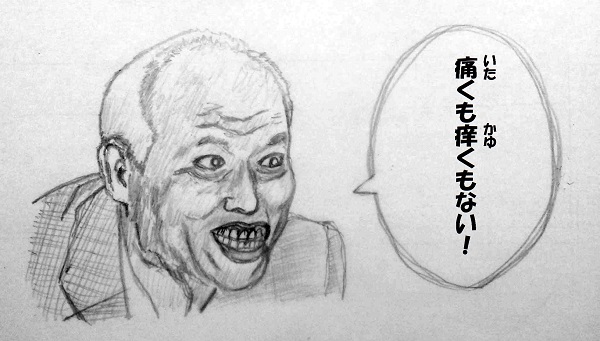 痛くも痒くもない！
いた
かゆ